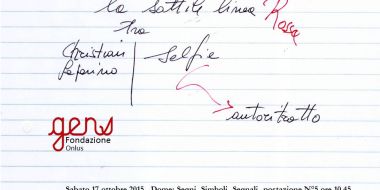 la sottile linea Rossa
tra
Christian Paparino | selfie
autoritratto
gens
Fondazione
Onlus
Sabato 17 ottobre 2015 Dome: Segni, Simboli, Segnali, postazione N°5 ore 10.45